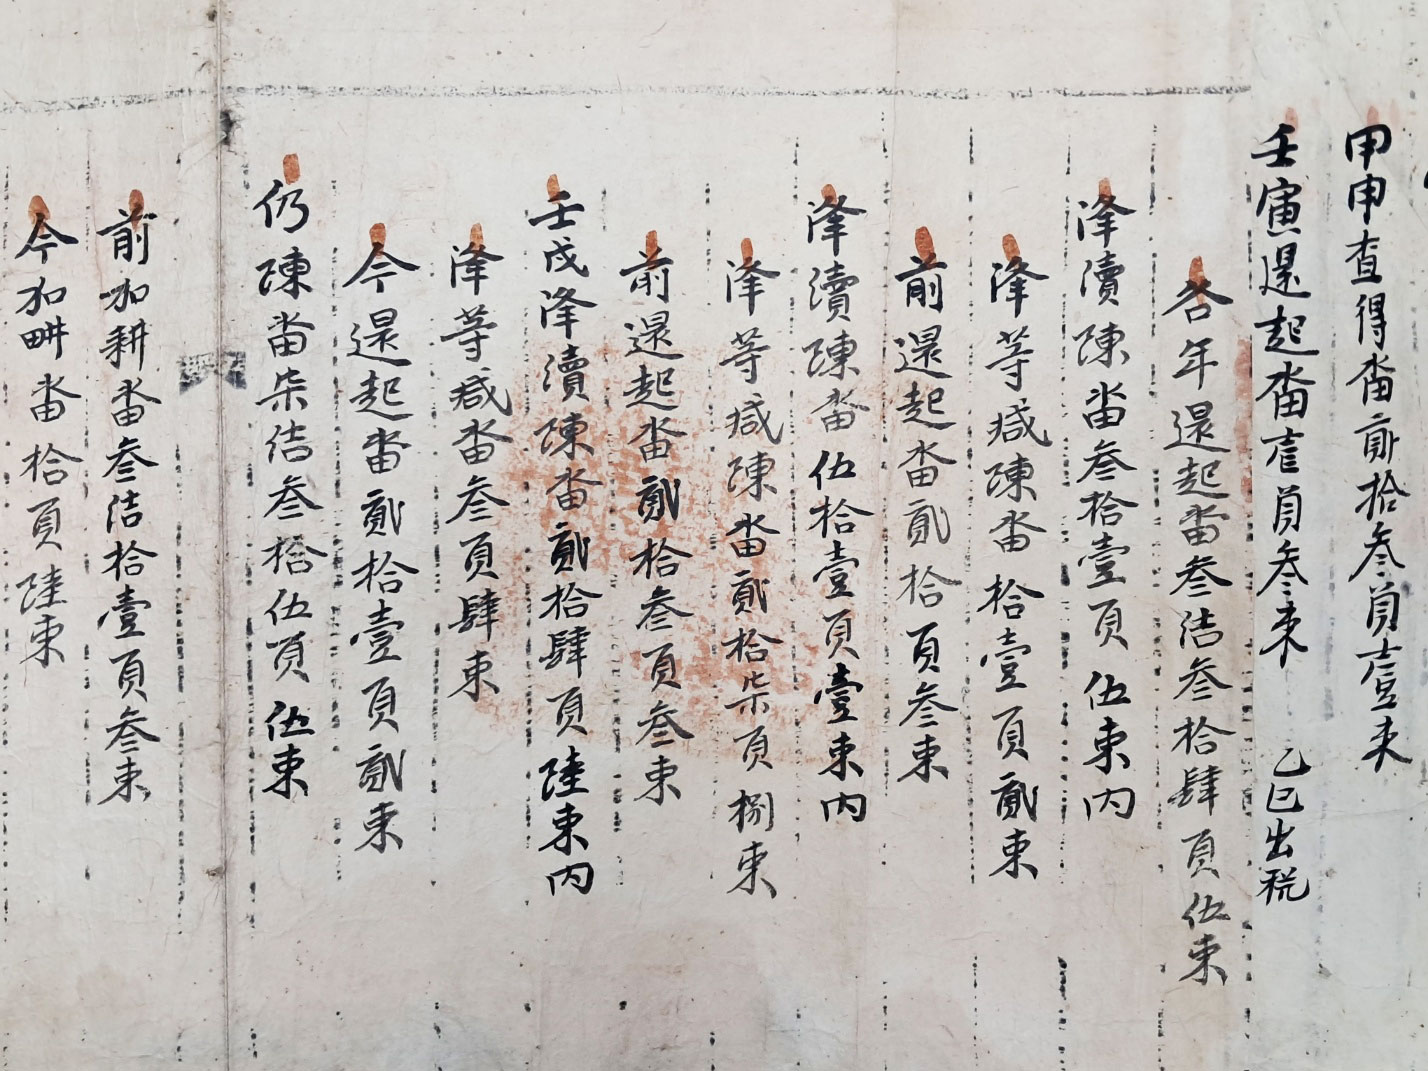 甲申查得畓貳拾叁負壹束
壬寅還起畓壹負叁束 乙巳出稅
各年還起畓叁结叁拾肆負伍束
泽續陳畓叁拾壹負伍束內
泽等减陳畓拾壹負貳束
前還起畓貳拾負叁束
泽續陳畓伍拾壹負壹束內
泽等减陳畓貳拾柒負捌束
前還起畓貳拾叁負叁束
壬戌泽續陳畓貳拾肆負陸束內
泽等减畓叁負肆束
今還起畓貳拾壹負貳束
仍陳畓柒结叁拾伍負伍束
前加耕畓叁结拾壹負叁束
今加畊畓拾負陸束